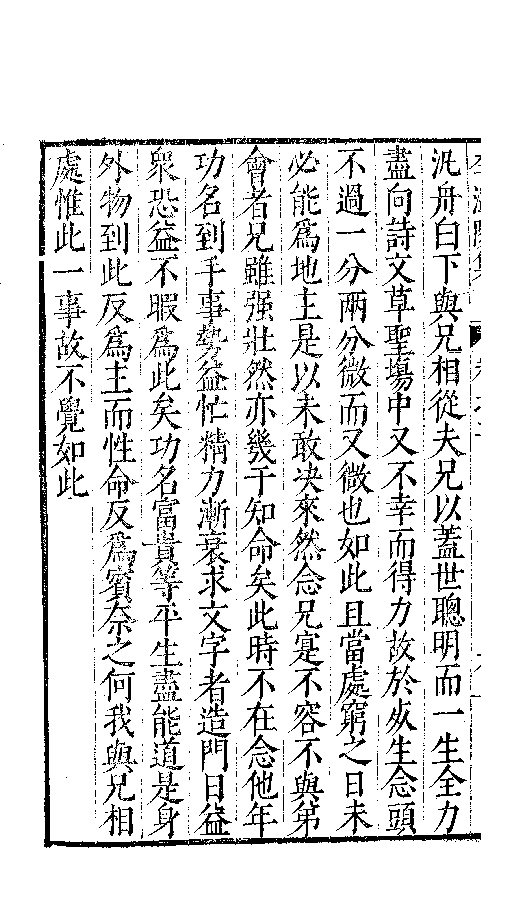 汎舟白下與兄相從夫兄以蓋世聰明而一生全力
盡向詩文草聖塲中又不幸而得力故於死生念頭
不過一分兩分微而又微也如此且當處窮之日未
必能爲地主是以未敢决來然念兄寔不容不與第
會者兄雖强壯然亦幾于知命矣此時不在念他年
功名到手事勢益忙精力漸衰求文字者造門日益
衆恐益不暇爲此矣功名富貴等平生盡能道是身
外物到此反爲主而性命反爲賓奈之何我與兄相
處惟此一事故不覺如此